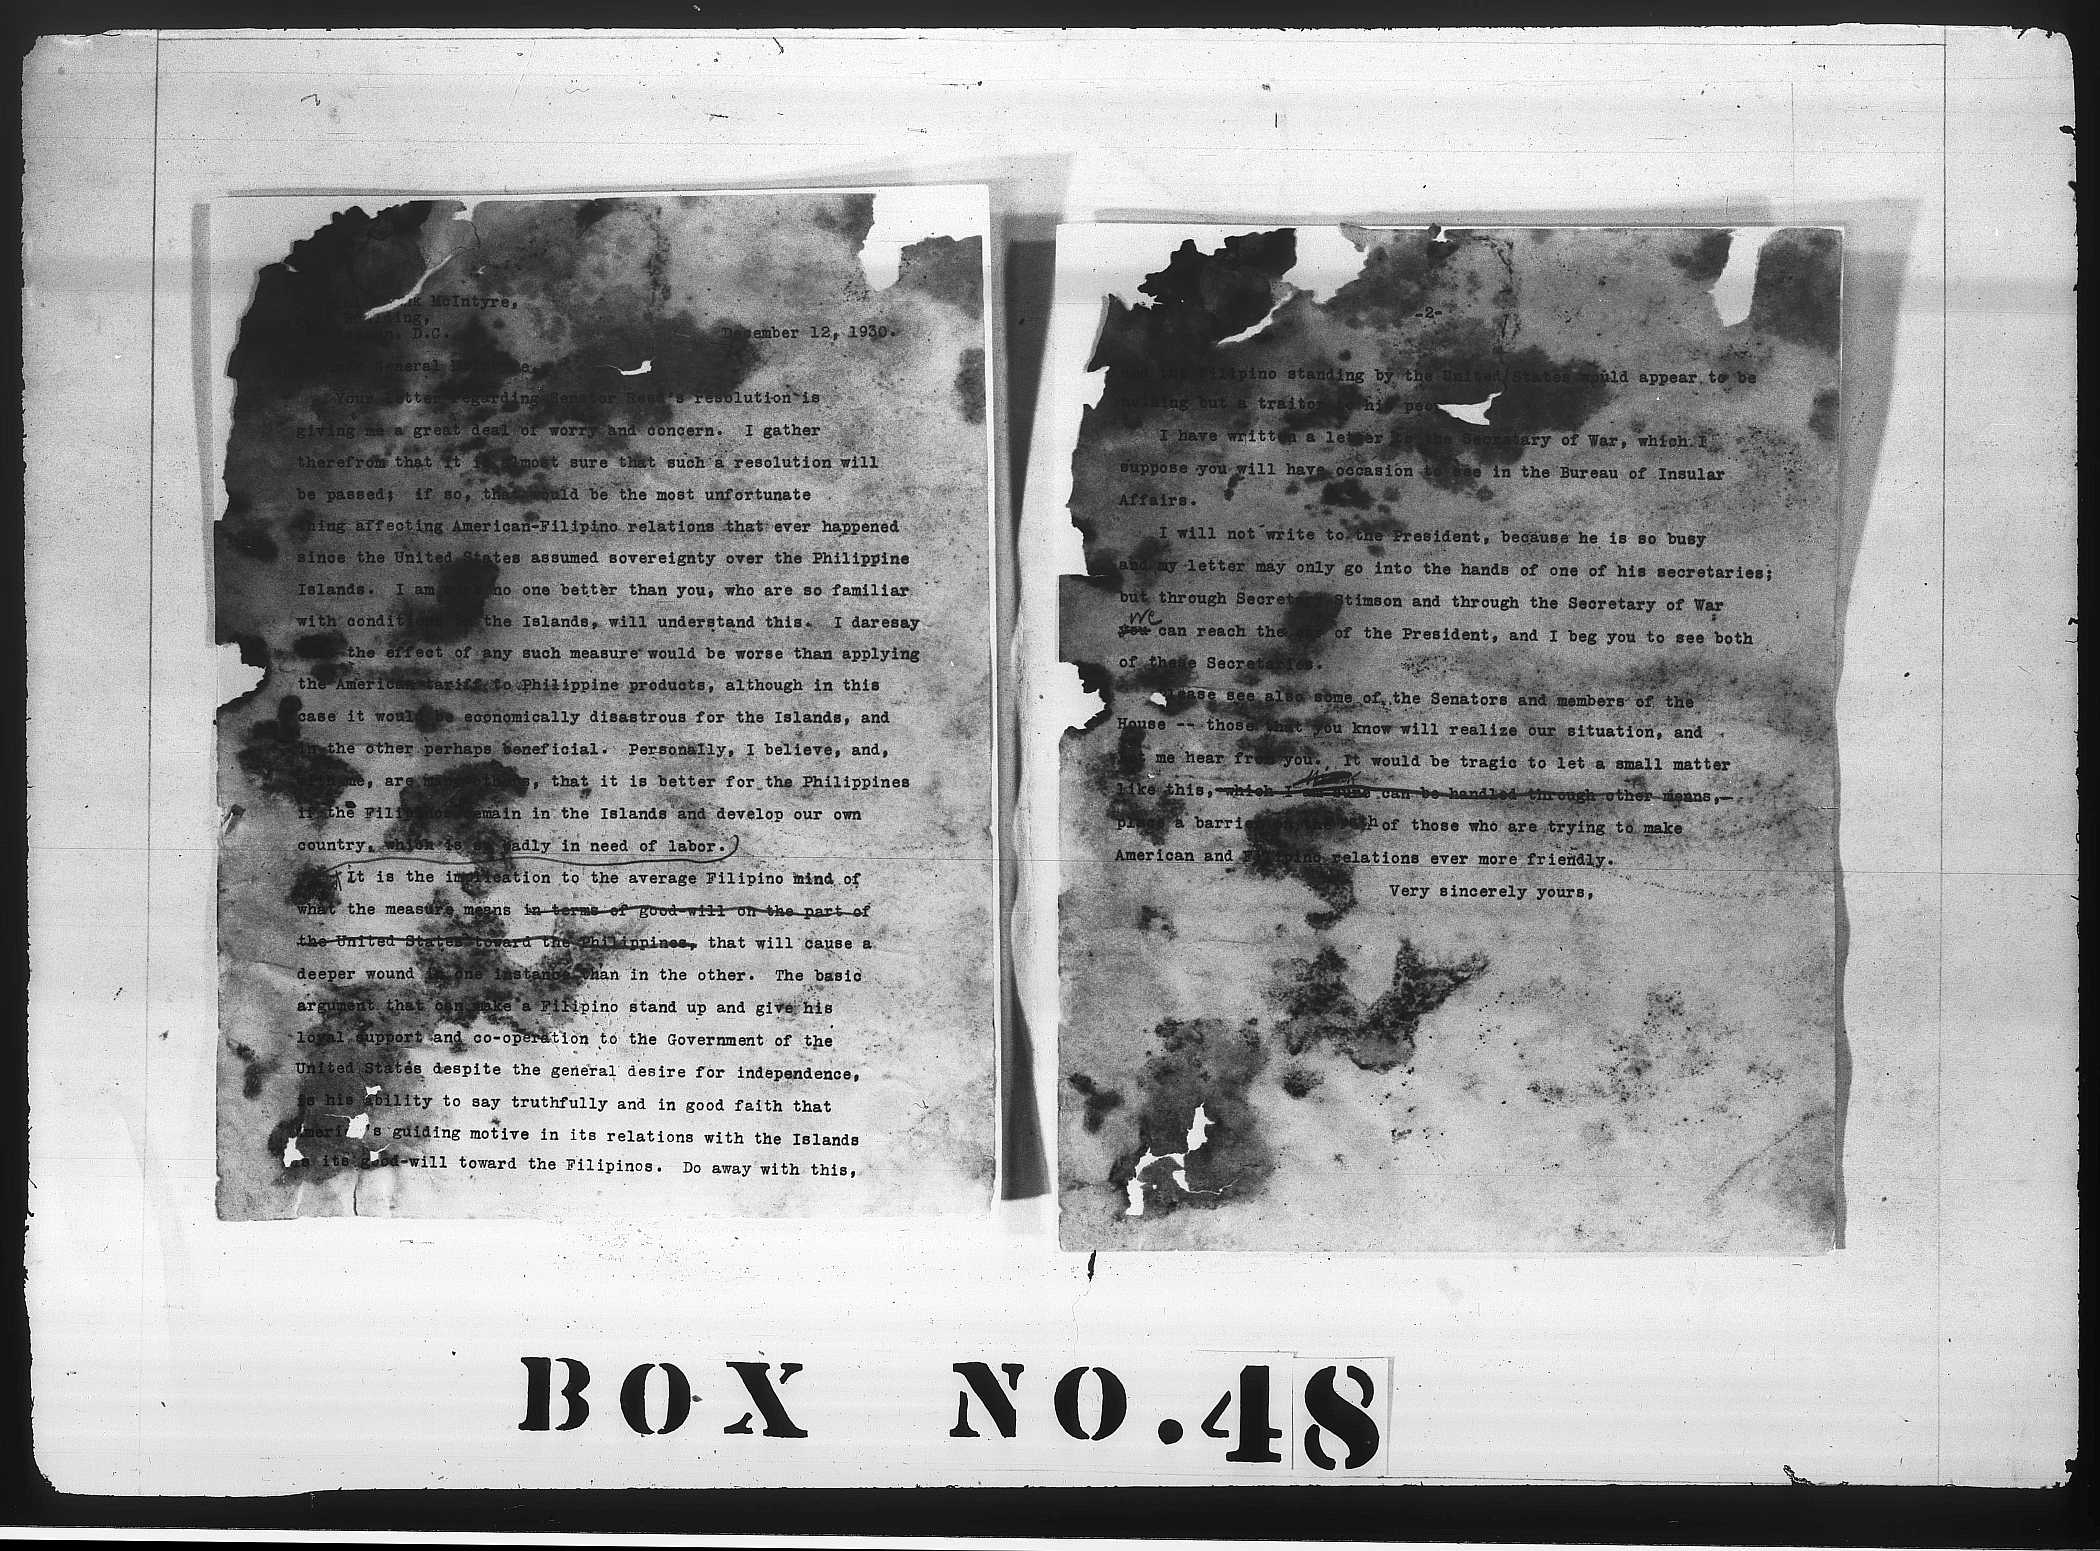 McIntyre,
D.C.
December 12, 1930.
General
Your letter regarding Senator Reed's resolution is
giving me a great deal of worry and concern. I gather
therefrom that it is almost sure that such a resolution will
be passed; if so, that would be the most unfortunate
thing affecting American-Filipino relations that ever happened
since the United States assumed sovereignty over the Philippine
Islands. I am no one better than you, who are so familiar
with conditions in the Islands, will understand this. I daresay
the effect of any such measure would be worse than applying
the American tariff to Philippine products, although in this
case it would be economically disastrous for the Islands, and
in the other perhaps beneficial. Personally, I believe, and,
with me, are many others, that it is better for the Philippines
if the Filipinos remain in the Islands and develop our own
country, which is so badly in need of labor.
It is the implication to the average Filipino mind of
what the measure means in terms of good-will on the part of
the United States toward the Philippines, that will cause a
deeper wound in one instance than in the other. The basic
argument that can make a Filipino stand up and give his
loyal support and co-operation to the Government of the
United States despite the general desire for independence,
is his ability to say truthfully and in good faith that
America's guiding motive in its relations with the Islands
is its good-will toward the Filipinos. Do away with this,
-2-
and the Filipino standing by the United States would appear to be
nothing but a traitor to his people
I have written a letter to the Secretary of War, which I
suppose you will have occasion to see in the Bureau of Insular
Affairs.
I will not write to the President, because he is so busy
and my letter may only go into the hands of one of his secretaries;
but through Secretary Stimson and through the Secretary of War
we
you can reach the ear of the President, and I beg you to see both
of these Secretaries.
Please see also some of the Senators and members of the
House -- those that you know will realize our situation, and
let me hear from you. It would be tragic to let a small matter
like this, which I am sure can be handled through other means,
place a barrier in the path of those who are trying to make
American and Filipino relations ever more friendly.
Very sincerely yours,
BOX NO.48